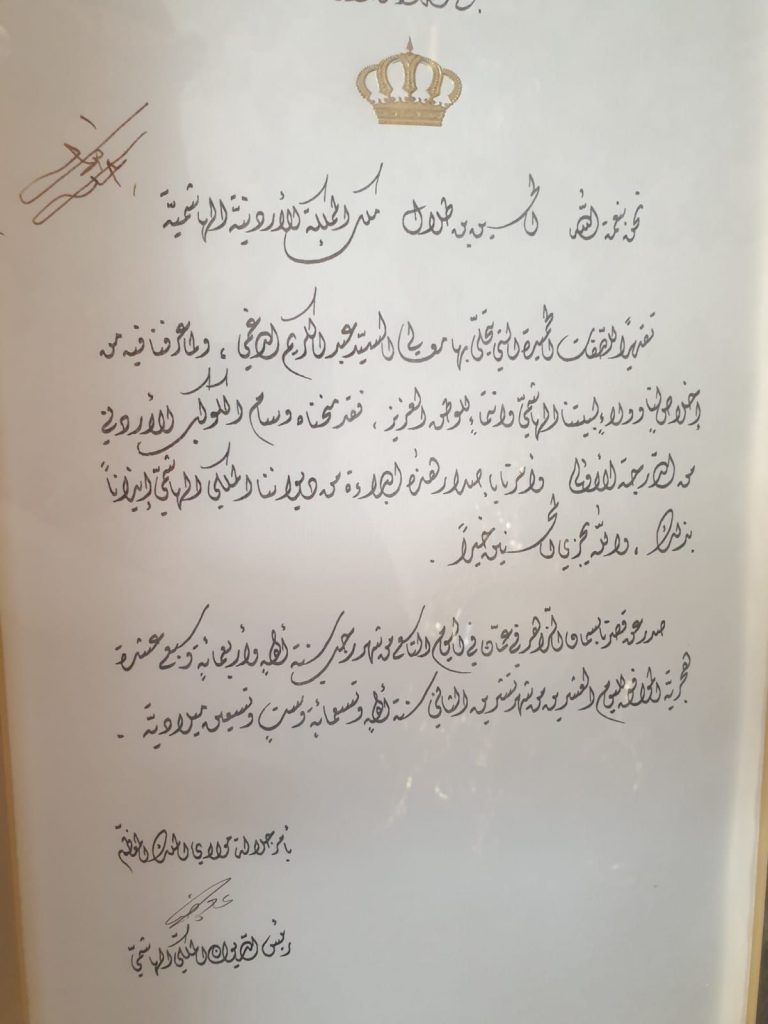 نحن بنعمة الله الحسين بن طلال ملك المملكة الأردنية الهاشمية
تقديرًا للصفات الحميدة التي تحلّى بها معالي السيّد عبد الكريم الدغمي ، ولما عرفنا فيه من
إخلاصٍ لنا وولاءٍ لبيتنا الهاشميّ وانتماءٍ للوطن العزيز ، فقد منحناه وسام الكوكب الأردني
من الدّرجة الأولى وأمرنا بإصدار هذه البراءة من ديواننا الملكي الهاشميّ إيذانًا
بذلك ، والله يجزي المحسنين خيرًا .
صدر عن قصرنا بسمان الزّاهر في عمّان في اليوم التاسع من شهر رجب سنة ألفٍ وأربعمائةٍ وسبع عشرة
هجريّة الموافق لليوم العشرين من شهر تشرين الثاني سنة ألفٍ وتسعمائةٍ وستٍ وتسعين ميلاديّة .
بأمر جلالة مولاي الملك المعظّم
رئيس الديوان الملكيّ الهاشميّ